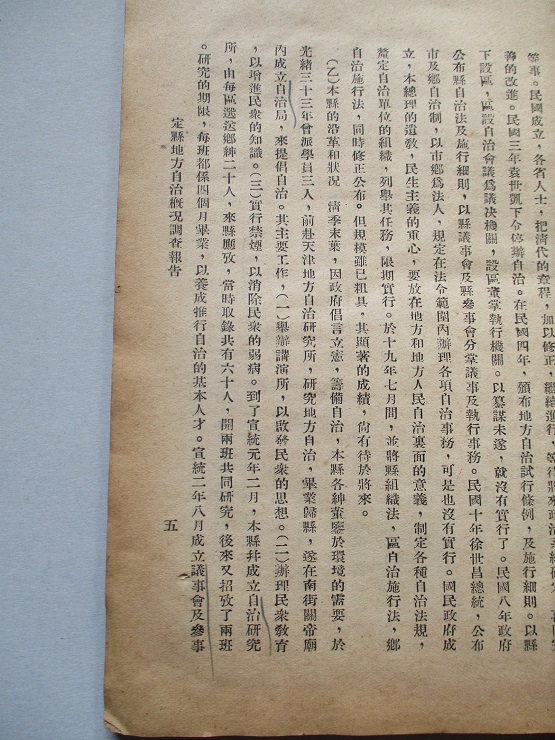 等事。民國成立，各省人士，把清代的章程，加以修正，繼續進行，等待將來政
善的改進。民國三年袁世凱下令停辦自治。在民國四年，頒布地方自治試行條例，及施行細則。以縣
下設區，區設自治會議爲議決機關，設區董掌執行機關。以纂謀未遂，就沒有實行了。民國八年政府
公布縣自治法及施行細則，以縣議事會及縣參事會分掌議事及執行事務。民國十年徐世昌總統，公布
市及鄉自治制，以市鄉爲法人，規定在法令範圍內辦理各項自治事務，可是也沒有實行。國民政府成
立，本總理的遺敎，民生主義的重心，要放在地方和地方人民自治裏面的意義，制定各種自治法規，
釐定自治單位的組織，列舉其任務，限期實行。於十九年七月間，並將縣組織法，區自治施行法，鄉
自治施行法，同時修正公布。但規模雖已粗具，其顯著的成績，尙有待於將來。
(乙)本縣的沿革和狀況　清季末葉，因政府倡言立憲，籌備自治，本縣各紳董鑒於環境的需要，於
光緒三十三年曾派學員三人，前赴天津地方自治研究所，研究地方自治，畢業歸縣，遂在南街關帝廟
內成立自治局，來提倡自治。其主要工作，(一)舉辦講演所，以啟發民衆的思想。(二)辦理民衆敎育
，以增進民衆的知識。(三)實行禁煙，以消除民衆的弱病。到了宣統元年二月，本縣幷成立自治研究
所，由每區選送鄉紳二十人，來縣應攷，當時取錄共有六十人，開兩班共同研究，後來又招攷了兩班
。研究的期限，每班都係四個月畢業，以養成推行自治的基本人才。宣統二年八月成立議事會及參事
定縣地方自治槪況調查報告
五